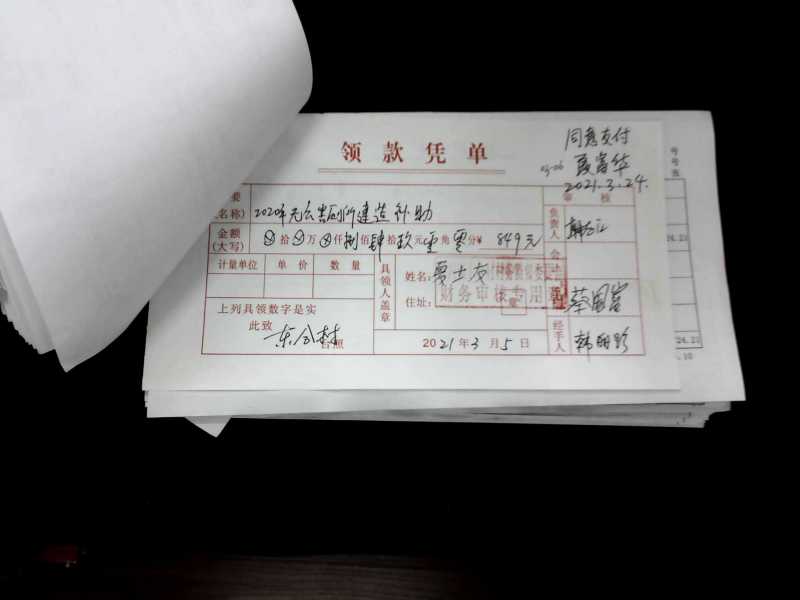 领款凭单
同意支付
聂富华
2021.3.24.
要
(名称) 2020年无公害厕所建造补助
审核
负责人
金额(大写) ⊗拾⊗万⊗仟捌佰肆拾玖元零角零分¥ 849元
计量单位 单价 数量
具领人盖章
姓名: 贾士友
住址:
财务审核专用章
会计
蔡国富
上列具领数字是实
此致
东台村 台照
2021年3月5日
经手人
韩丽珍